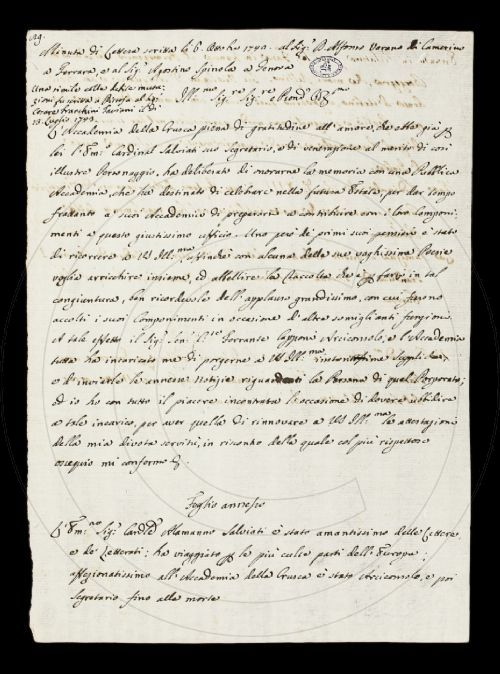 Minuta di Lettera scritta li 6. Ottobre 1743. al Sig.r D. Alfonso Varano di Camerino
a Ferrara, e al Sig.r Agostino Spinola a Genova
Una simile colle debite muta-
zioni fu scritta a Pistoja al Sig.r
Cesare Franchini Taviani il di
13. Luglio 1743.
Ill.mo Sig.re Sig.re e Pron.
L'Accademia della Crusca piena di gratitudine all'amore, che ebbe già p
lei l'Em.o Cardinal Salviati suo Segretario, e di venerazione al merito di così
illustre Personaggio, ha deliberato di onorarne la memoria con una Pubblica
Accademia, che ha destinato di celebrare nella futura Estate, per dar tempo
frattanto a' suoi Accademici di prepararsi a contribuire con i loro Componi-
menti a questo giustissimo ufficio. Uno però de' primi suoi pensieri è stato
di ricorrere a VS Ill.ma, affinchè con alcuna delle sue vaghissime Poesie
voglia arricchire insieme, ed abbellire la Raccolta che è p farsi in tal
congiuntura, ben ricordevole dell'applauso grandissimo, con cui furono
accolti i suoi Componimenti in occasione d'altre somiglianti funzioni.
A tale effetto il Sig.r Sen. Ferrante Capponi Arciconsolo, e l'Accademia
tutta ha incaricato me di porgerne a VS Ill.ma
e d'inviarle le annesse Notizie riguardanti la Persona di quel Porporato;
ed io ho con tutto il piacere incontrata l'occasione di dovere ubbidire
a tale incarico, per aver quella di rinnovare a VS Ill.ma le attestazioni
della mia divota servitù, in riscontro della quale col più rispettoso
ossequio mi confermo
Foglio annesso
L'Em.mo Sig.r Card.le Alamanno Salviati è stato amantissimo delle Lettere,
e de' Letterati; ha viaggiato p le più culte parti dell'Europa;
affezionatissimo all'Accademia della Crusca è stato Arciconsolo, e poi
Segretario fino alla morte